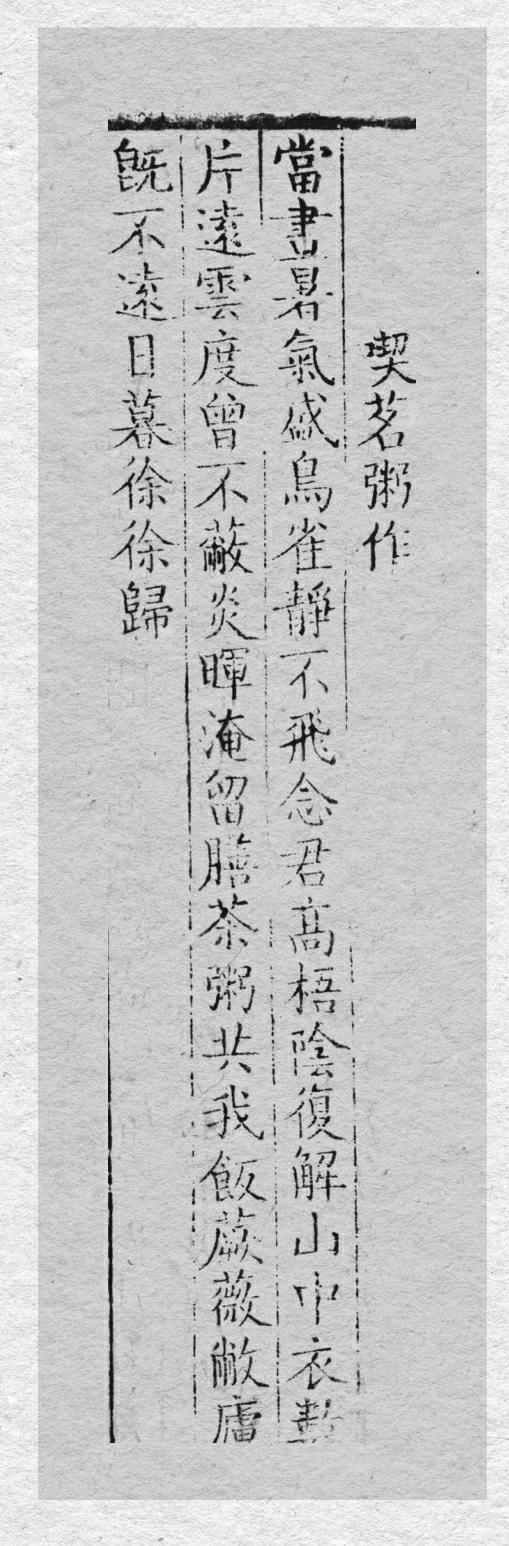 喫茗粥作
當晝暑氣盛鳥雀靜不飛念君高梧陰復解山中衣數
片遠雲度曾不蔽炎暉淹留膳茶粥共我飯蕨薇敝廬
旣不遠日暮徐徐歸